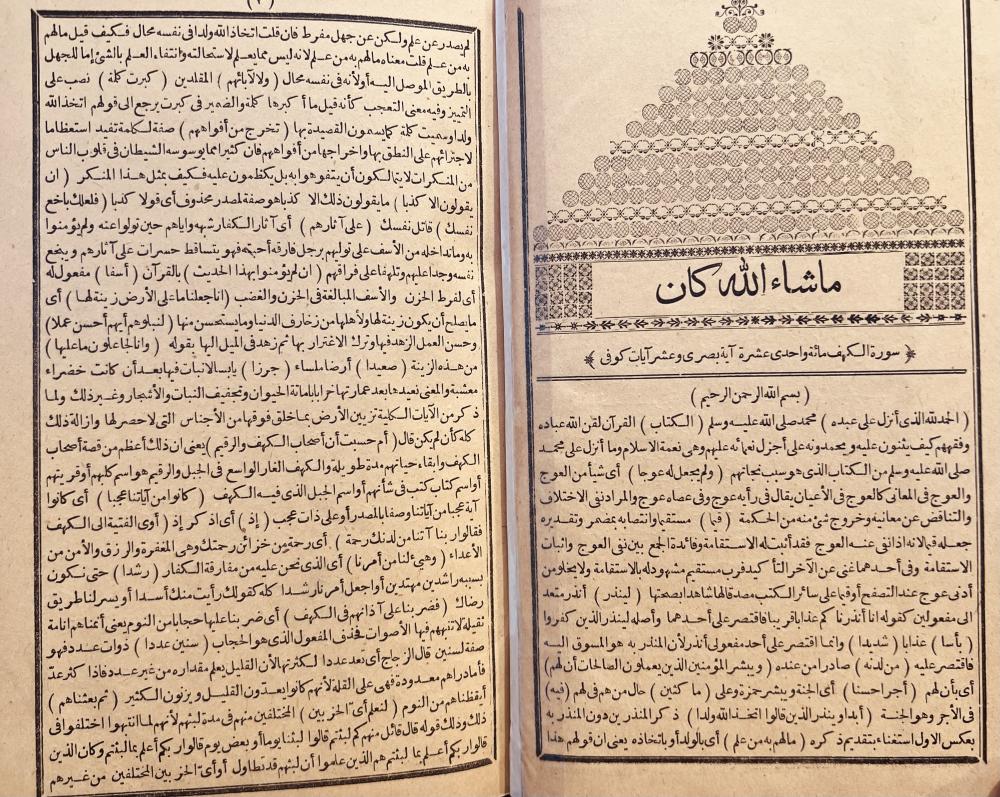 ما شاء الله كان
سورة الكهف مائة واحدى عشرة آية بصرى وعشر آيات كوفى
(بسم الله الرحمن الرحيم)
(الحمد لله الذى أنزل على عبده) محمد صلى الله عليه وسلم (الكتاب) القرآن لقن الله عباده
وفقههم كيف يثنون عليه ويحمدونه على أجزل نعمائه عليهم وهى نعمة الاسلام وما أنزل على محمد
صلى الله عليه وسلم من الكتاب الذى هو سبب نجاتهم (ولم يجعل له عوجا) أى شيأ من العوج
والعوج فى المعانى كالعوج فى الأعيان يقال فى رأيه عوج وفى عصاه عوج والمراد نفى الاختلاف
والتناقض عن معانيه وخروج شئ منه من الحكمة (قيما) مستقيما وانتصابه بمضمر وتقديره
جعله قيما لانه اذا نفى عنه العوج فقد أثبت له الاستقامة وفائدة الجمع بين نفى العوج واثبات
الاستقامة وفى أحدهما غنى عن الآخر التأكيد فرب مستقيم مشهود له بالاستقامة ولا يخلو من
أدنى عوج عند التصفح أو قيما على سائر الكتب مصدقا لها شاهدا بصحتها (لينذر) أنذر متعد
الى مفعولين كقوله انا أنذرناكم عذابا قريبا فاقتصر على أحدهما وأصله لينذر الذين كفروا
(بأسا) عذابا (شديدا) وانما اقتصر على أحد مفعولى أنذر لأن المنذر به هو المسوق اليه
فاقتصر عليه (من لدنه) صادرا من عنده (ويبشر المؤمنين الذين يعملون الصالحات أن لهم)
أى بأن لهم (أجرا حسنا) أى الجنة ويبشر حمزة وعلى (ماكثين) حال من هم فى لهم (فيه)
فى الأجر وهو الجنة (أبدا وينذر الذين قالوا اتخذ الله ولدا) ذكر المنذرين دون المنذر به
بعكس الاول استغناء بتقديم ذكره (ما لهم به من علم) أى بالولد أو باتخاذه يعنى ان قولهم هذا
لم يصدر عن علم ولكن عن جهل مفرط فان قلت اتخاذ الله ولدا فى نفسه محال فكيف قيل ما لهم
به من علم قلت معناه ما لهم به من علم لانه ليس مما يعلم لاستحالته وانتفاء العلم بالشئ اما للجهل
بالطريق الموصل اليه أو لأنه فى نفسه محال (ولا لآبائهم) المقلدين (كبرت كلمة) نصب على
التمييز وفيه معنى التعجب كأنه قيل ما أكبرها كلمة والضمير فى كبرت يرجع الى قولهم اتخذ الله
ولدا وسميت كلمة كما يسمون القصيدة بها (تخرج من أفواههم) صفة لكلمة تفيد استعظاما
لاجترائهم على النطق بها واخراجها من أفواههم فان كثيرا مما يوسوسه الشيطان فى قلوب الناس
من المنكرات لا يتمالكون أن يتفوهوا به بل يكظمون عليه فكيف بمثل هذا المنكر (ان
يقولون الا كذبا) ما يقولون ذلك الا كذبا هو صفة لمصدر محذوف أى قولا كذبا (فلعلك باخع
نفسك) قاتل نفسك (على آثارهم) أى آثار الكفار شبهه واياهم حين تولوا عنه ولم يؤمنوا
به وما تداخله من الأسف على توليهم برجل فارقه أحبته فهو يتساقط حسرات على آثارهم ويبخع
نفسه وجدا عليهم وتلهفا على فراقهم (ان لم يؤمنوا بهذا الحديث) بالقرآن (أسفا) مفعول له
أى لفرط الحزن والأسف المبالغة فى الحزن والغضب (انا جعلنا ما على الأرض زينة لها) أى
ما يصلح أن يكون زينة لها ولأهلها من زخارف الدنيا وما يستحسن منها (لنبلوهم أيهم أحسن عملا)
وحسن العمل الزهد فيها وترك الاغترار بها ثم زهد فى الميل اليها بقوله (وانا لجاعلون ما عليها)
من هذه الزينة (صعيدا) أرضا ملساء (جرزا) يابسا لا نبات فيها بعد أن كانت خضراء
معشبة والمعنى نعيدها بعد عمارتها خرابا باماتة الحيوان وتجفيف النبات والأشجار وغير ذلك ولما
ذكر من الآيات الكلية تزيين الأرض بما خلق فوقها من الأجناس التى لا حصر لها وازالة ذلك
كله كأن لم يكن قال (أم حسبت أن أصحاب الكهف والرقيم) يعنى ان ذلك أعظم من قصة أصحاب
الكهف وابقاء حياتهم مدة طويلة والكهف الغار الواسع فى الجبل والرقيم هو اسم كلبهم أو قريتهم
أو اسم كتاب كتب فى شأنهم أو اسم الجبل الذى فيه الكهف (كانوا من آياتنا عجبا) أى كانوا
آية عجبا من آياتنا وصفا بالمصدر أو على ذات عجب (إذ) أى اذكر إذ (أوى الفتية الى الكهف
فقالوا ربنا آتنا من لدنك رحمة) أى رحمة من خزائن رحمتك وهى المغفرة والرزق والأمن من
الأعداء (وهيئ لنا من أمرنا) أى الذى نحن عليه من مفارقة الكفار (رشدا) حتى نكون
بسببه راشدين مهتدين أو اجعل أمرنا رشدا كله كقولك رأيت منك أسدا أو يسر لنا طريق
رضاك (فضربنا على آذانهم فى الكهف) أى ضربنا عليها حجابا من النوم يعنى أنمناهم انامة
ثقيلة لا تنبههم فيها الأصوات فحذف المفعول الذى هو الحجاب (سنين عددا) ذوات عدد فهو
صفة لسنين قال الزجاج أى تعد عددا لكثرتها لأن القليل يعلم مقداره من غير عدد فاذا كثر عد
فأما دراهم معدودة فهى على القلة لأنهم كانوا يعدون القليل ويزنون الكثير (ثم بعثناهم)
أيقظناهم من النوم (لنعلم أى الحزبين) المختلفين منهم فى مدة لبثهم لأنهم لما انتبهوا اختلفوا فى
ذلك وذلك قوله قال قائل منهم كم لبثتم قالوا لبثنا يوما أو بعض يوم قالوا ربكم أعلم بما لبثتم وكان الذين
قالوا ربكم أعلم بما لبثتم هم الذين علموا أن لبثهم قد تطاول أو أى الحزبين المختلفين من غيرهم